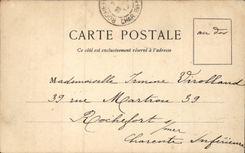 CARTE POSTALE
Ce côté est exclusivement réservé à l'adresse
au dos
Mademoiselle Simone Virolland
39 rue Martrou 39
Rochefort s/mer
Charente Inférieure